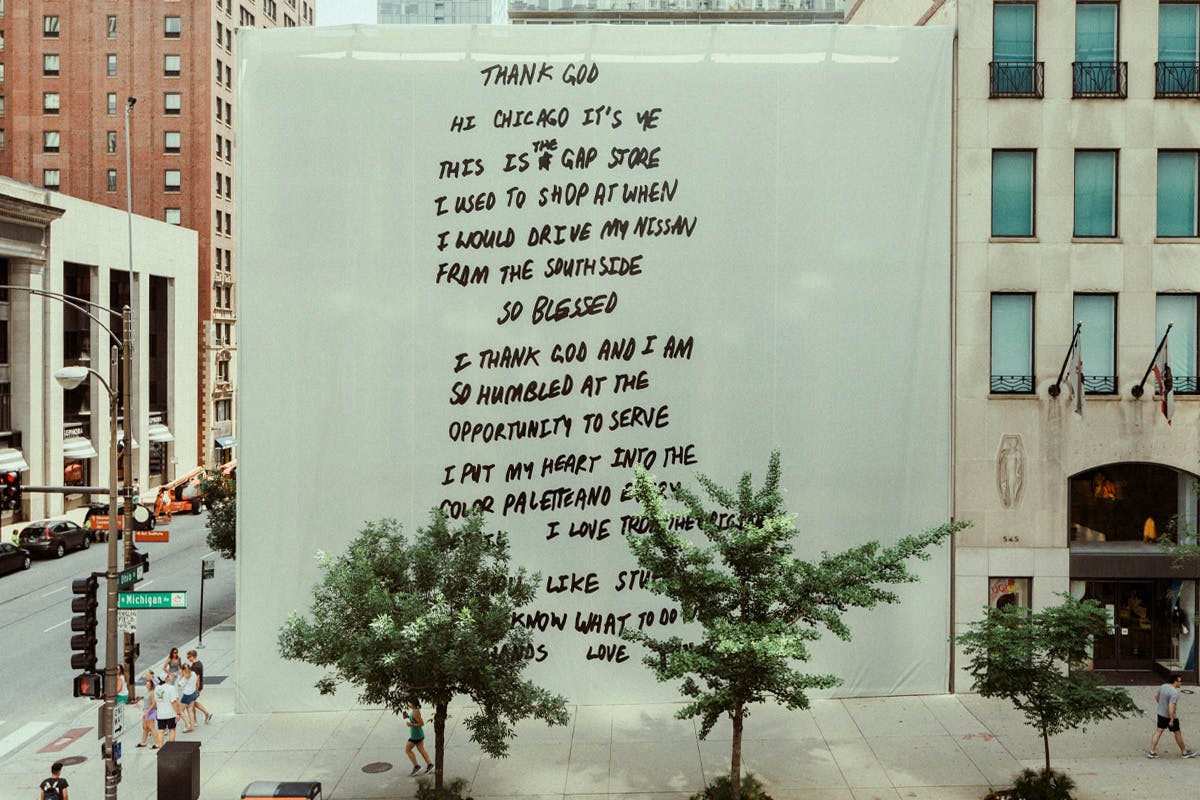 THANK GOD
HI CHICAGO IT'S YE
THIS IS THE GAP STORE
I USED TO SHOP AT WHEN
I WOULD DRIVE MY NISSAN
FROM THE SOUTHSIDE
SO BLESSED
I THANK GOD AND I AM
SO HUMBLED AT THE
OPPORTUNITY TO SERVE
I PUT MY HEART INTO THE
COLOR PALETTE AND
I LOVE
LIKE
KNOW WHAT TO DO
LOVE
SEPHORA
Ohio
N Michigan Av
545